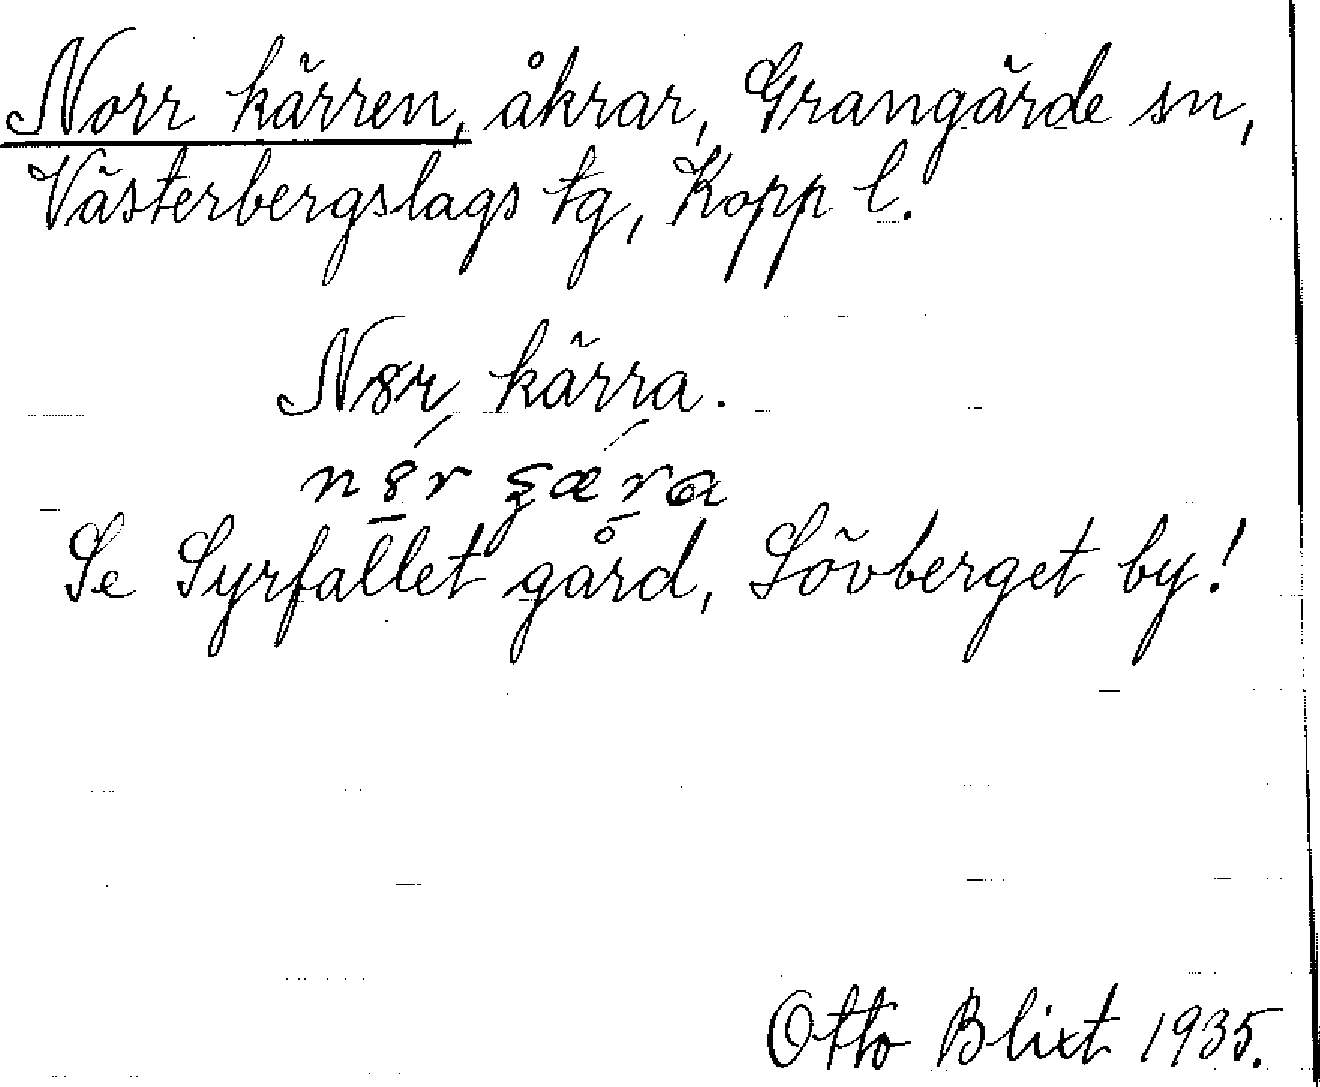 Norr kärren, åkrar, Grangärde sn,
Västerbergslags tg, Kopp l.
Nꝏr kärra.
Se Syrfallet gård, Lövberget by!
Otto Blixt 1935.